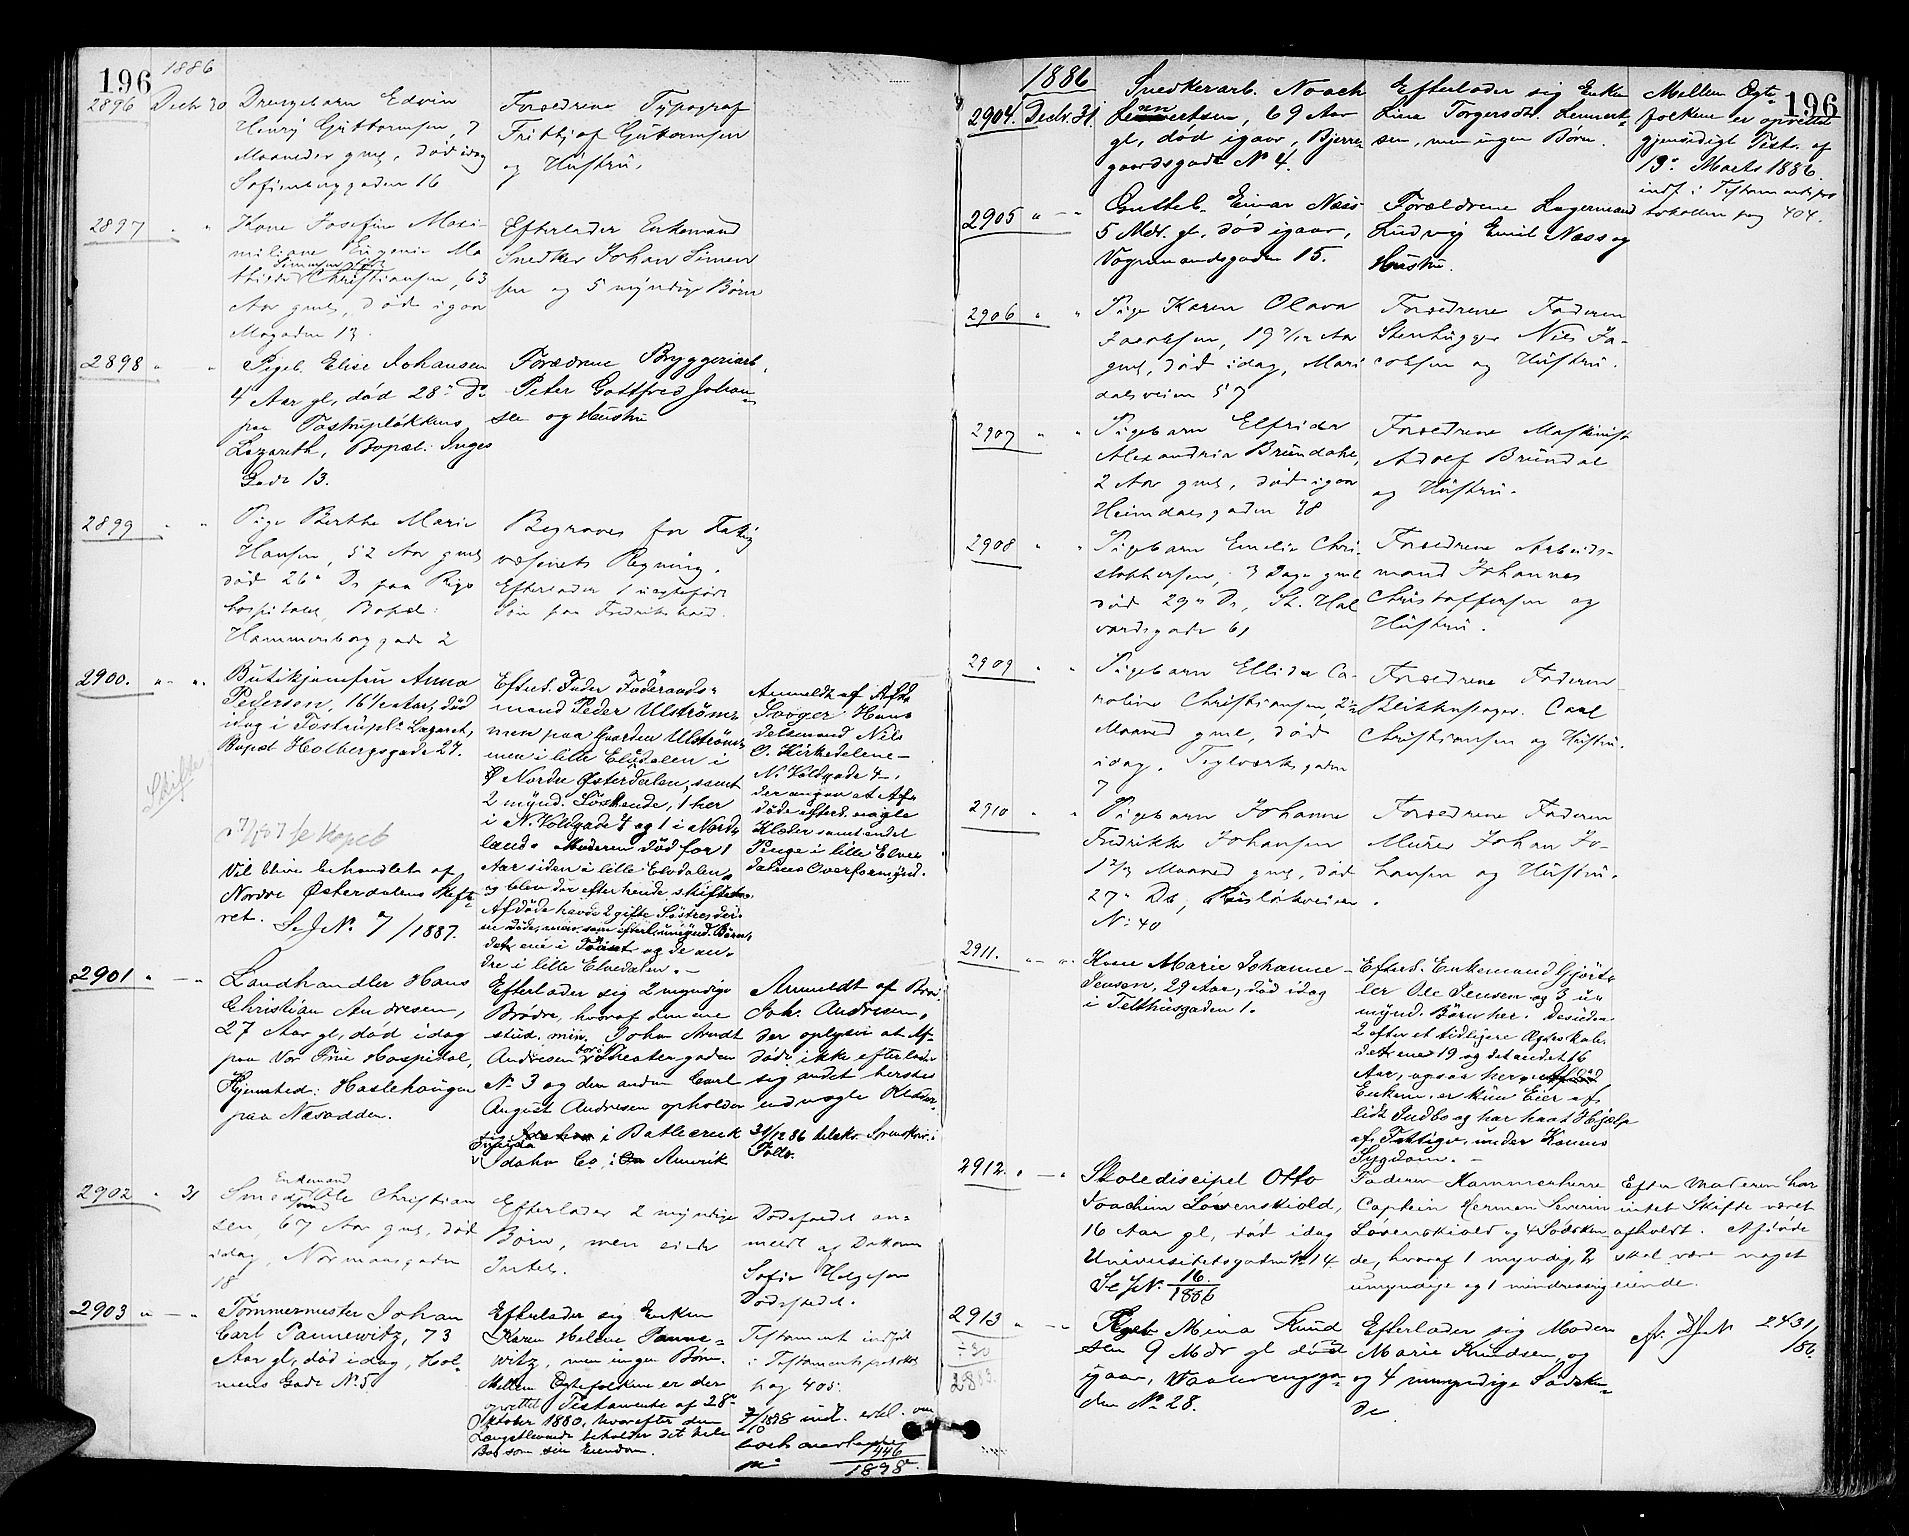 196
1886
2896 Decbr 30
Drengebarn Edvin
Henry Guttormsen, 7
Maaneder gml, død idag
Sofienberggaden 16
Forældrene Typograf
Frithjof Guttormsen
og Hustru.
2897 " "
Kone Josefine Maxi-
miliane Eugenie Ma
thilde Christiansen, 63
Aar gml, død igaar
Møgaden 13.
Efterlader Enkemand
Snedker Johan Simen
sen og 5 myndige Børn
2898 " - "
Pigeb. Elise Johansen
4 Aar gl, død 28de Ds
paa Tostrupløkkens
Lazareth, Bopæl: Inges
Gade 13.
Forældrene Bryggeriarb.
Peter Gottfred Johan-
sen og Hustru
2899 " "
Pige Berthe Marie
Hansen, 52 Aar gml
død 26de Ds paa Rigs
hospitalet, Bopæl:
Hammersborggade 2
Begraves for Fattig
væsenets Regning.
Efterlader 1 uægtefødt
Søn paa Fredrikshald.
2900. " - "
Butikjomfru Anna
Pedersen, 16½ Aar, død
idag i Tostrupl. Lazaret,
Bopæl Holbergsgade 27.
Skifte
Vil blive behandlet af
Nordre Østerdalens Skifte-
ret. Se J.No. 7/1887.
Efterl. Fader Føderaads-
mand Peder Ulstrøm-
men paa Gaarden Ulstrøm-
men i lille Elvdalen i
Nordre Østerdalen, samt
2 mynd. Søskende, 1 her
i N. Voldgade 4 og 1 i Nord-
land. Moderen død for 1
Aar siden i lille Elvdalen,
og blev der efter hende skiftet.
Afdøde havde 2 gifte Søstre, der
ere døde, men som efterl. umynd. Børn,
det ene i Tönset og de an-
dre i lille Elvedalen. -
Anmeldt af Afds
Svoger Han-
delsmand Nils
O. Kirkedelene-
N. Voldgade 4-,
der angav at Af-
døde efterl. nogle
Klæder samt endel
Penge i lille Elve
dalens Overformynd.
2901 " - "
Landhandler Hans
Christian Andresen,
27 Aar gl, død idag
paa Vor Frue Hospital,
Hjemsted: Haslehaugen
paa Næsodden.
Efterlader sig 2 myndige
Brødre, hvoraf den ene
stud. min. John Arndt
Andresen bor i Theatergaden
No 3 og den anden Carl
August Andresen opholder
sig i Battlecreek
Idaho Co, i Amerik
Anmeldt af Bro.
Joh. Andresen,
der oplyser at Af-
døde ikke efterlader
sig andet herstes
end nogle Klæder.
31/12 86 telskr. Sorenskriv. i
Follo.
2902 " 31
Enkemand
Smed Ole Christian
sen, 67 Aar gml, død
idag, Normansgaden
18
Efterlader 2 myndige
Børn, men eiede
Intet.
Dødsfaldet an-
meldt af Datteren
Sofie Helgesen
Dødsstedet.
2903 " - "
Tømmermester Johan
Carl Pannewitz, 73
Aar gl, død idag, Hol-
mens Gade No 5
Efterlader sig Enken
Karen Helene Panne-
witz, men ingen Børn.
Mellem Ægtefolkene er der
oprettet Testamente af 28de
Oktober 1880, hvorefter den
Længstlevende beholder det hele
Bo som sin Eiendom.
Testament indført
i Testamentsprotokol
pag 405.
1946
1898
196
1886
2904. Decbr. 31.
Snedkerarb. Noach
Lennertsen, 69 Aar
gl, død igaar, Bjerre
gaardsgade No 4.
Efterlader sig Enken
Line Torgersdt. Lennert-
sen, men ingen Børn.
Mellem Ægte-
folkene er oprettet
gjensidigt Test. af
19de Marts 1886.
indf. i Testamentspro
tokollen pag 404.
2905 " - -
Gutteb. Einar Næss
5 Mdr. gl, død igaar,
Vognmandsgaden 15.
Forældrene Lagermand
Ludvig Emil Næss og
Hustru.
2906 " "
Pige Karen Olava
Jacobsen, 19 7/12 Aar
gml, død idag, Mari
dalsveien 57
Forældrene Faderen
Stenhugger Nils Ja-
cobsen og Hustru.
2907 " "
Pigebarn Elfrida
Alexandria Brundahl,
2 Aar gml, død igaar
Heimdalsgaden 38
Forældrene Maskinist
Adolf Brundal
og Hustru.
2908 " "
Pigebarn Emelie Chri-
stoffersen, 3 Dage gml
død 29de Ds, St. Hal
vardsgade 61
Forældrene Arbeids-
mand Johannes
Christoffersen og
Hustru.
2909 " "
Pigebarn Ellida Ca-
roline Christiansen, 2½
Maaned gml, død
idag, Teglværksgaden
7
Forældrene Faderen
Blikkenslager Carl
Christiansen og Hustru.
2910 " "
Pigebarn Johanne
Fredrikke Johansen
1½ Maaned gml, død
27de Ds, Ruseløkveien
No 40
Forældrene Faderen
Murer Johan Jo-
hansen og Hustru.
2911. " - "
Kone Marie Johanne
Jensen, 29 Aar, død idag
i Telthusgaden 1.
Efterl. Enkemand Gjørt-
ler Ole Jensen og 3 u-
mynd. Børn her. Desuden
2 efter et tidligere Ægteskab,
det ene 19 og det andet 16
Aar, ogsaa her.
Enkem. er kun Eier af
lidt Indbo og har havt Hjælp
af Fattigv. under Konens
Sygdom. -
2912. " - "
Skolediscipel Otto
Joachim Løvenskiold,
16 Aar gl, død idag
Universitetsgaden No 14
Se J.No. 16/1886
Faderen Kammerherre
Captein Herman Severin
Løvenskiold og 4 Sødsken
de, hvoraf 1 myndig, 2
umyndige og 1 mindreaarig
Efter Moderen har
intet Skifte været
afholdt. Afdøde
skal være noget
eiende.
2913 " - "
÷ 30
2883.
Pigeb. Mina Knud
sen 9 Mdr gl død
igaar, Vaalerengga-
den No 28.
Efterlader sig Moderen
Marie Knudsen og
og 4 umyndige Sødsken-
de
2431/86.